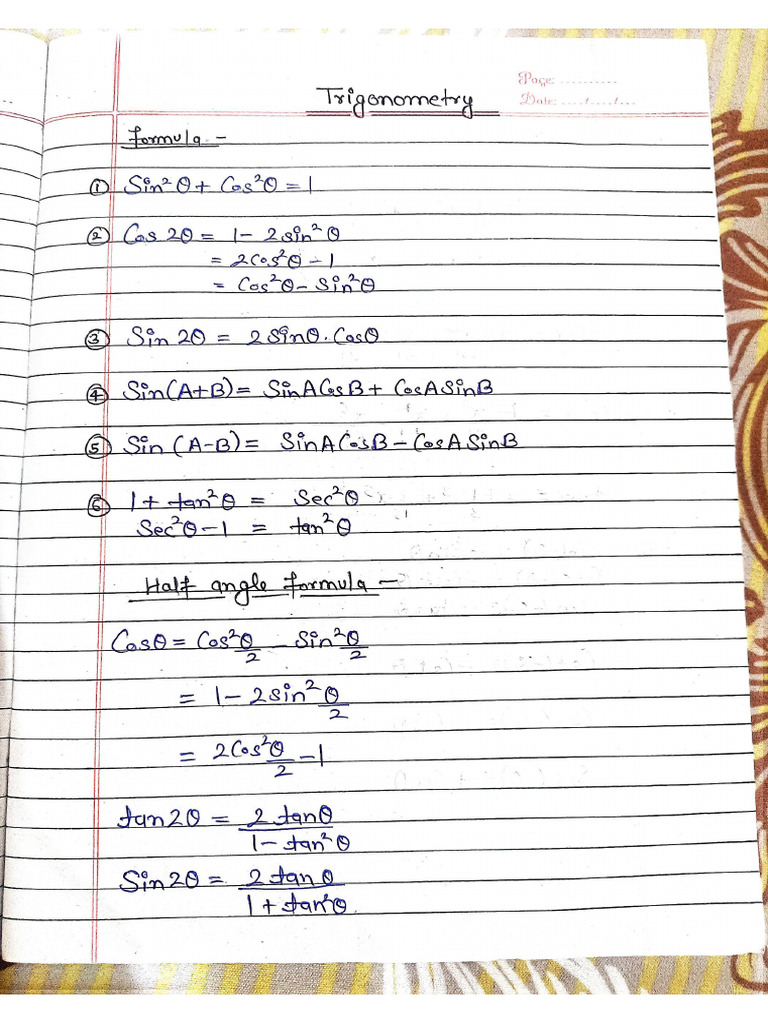 Trigonometry
Page: ..........
Date: ..../..../....
Formula :-
① Sin²θ + Cos²θ = 1
② Cos 2θ = 1 - 2 sin²θ
= 2 Cos²θ - 1
= Cos²θ - Sin²θ
③ Sin 2θ = 2 Sinθ . Cosθ
④ Sin(A+B) = SinA CosB + CosA SinB
⑤ Sin (A-B) = SinA CosB - CosA SinB
⑥ 1 + tan²θ = Sec²θ
Sec²θ - 1 = tan²θ
Half angle formula -
Cosθ = Cos²θ/2 - Sin²θ/2
= 1 - 2 Sin²θ/2
= 2 Cos²θ/2 - 1
tan 2θ = 2 tanθ / 1 - tan²θ
Sin 2θ = 2 tan θ / 1 + tan²θ.